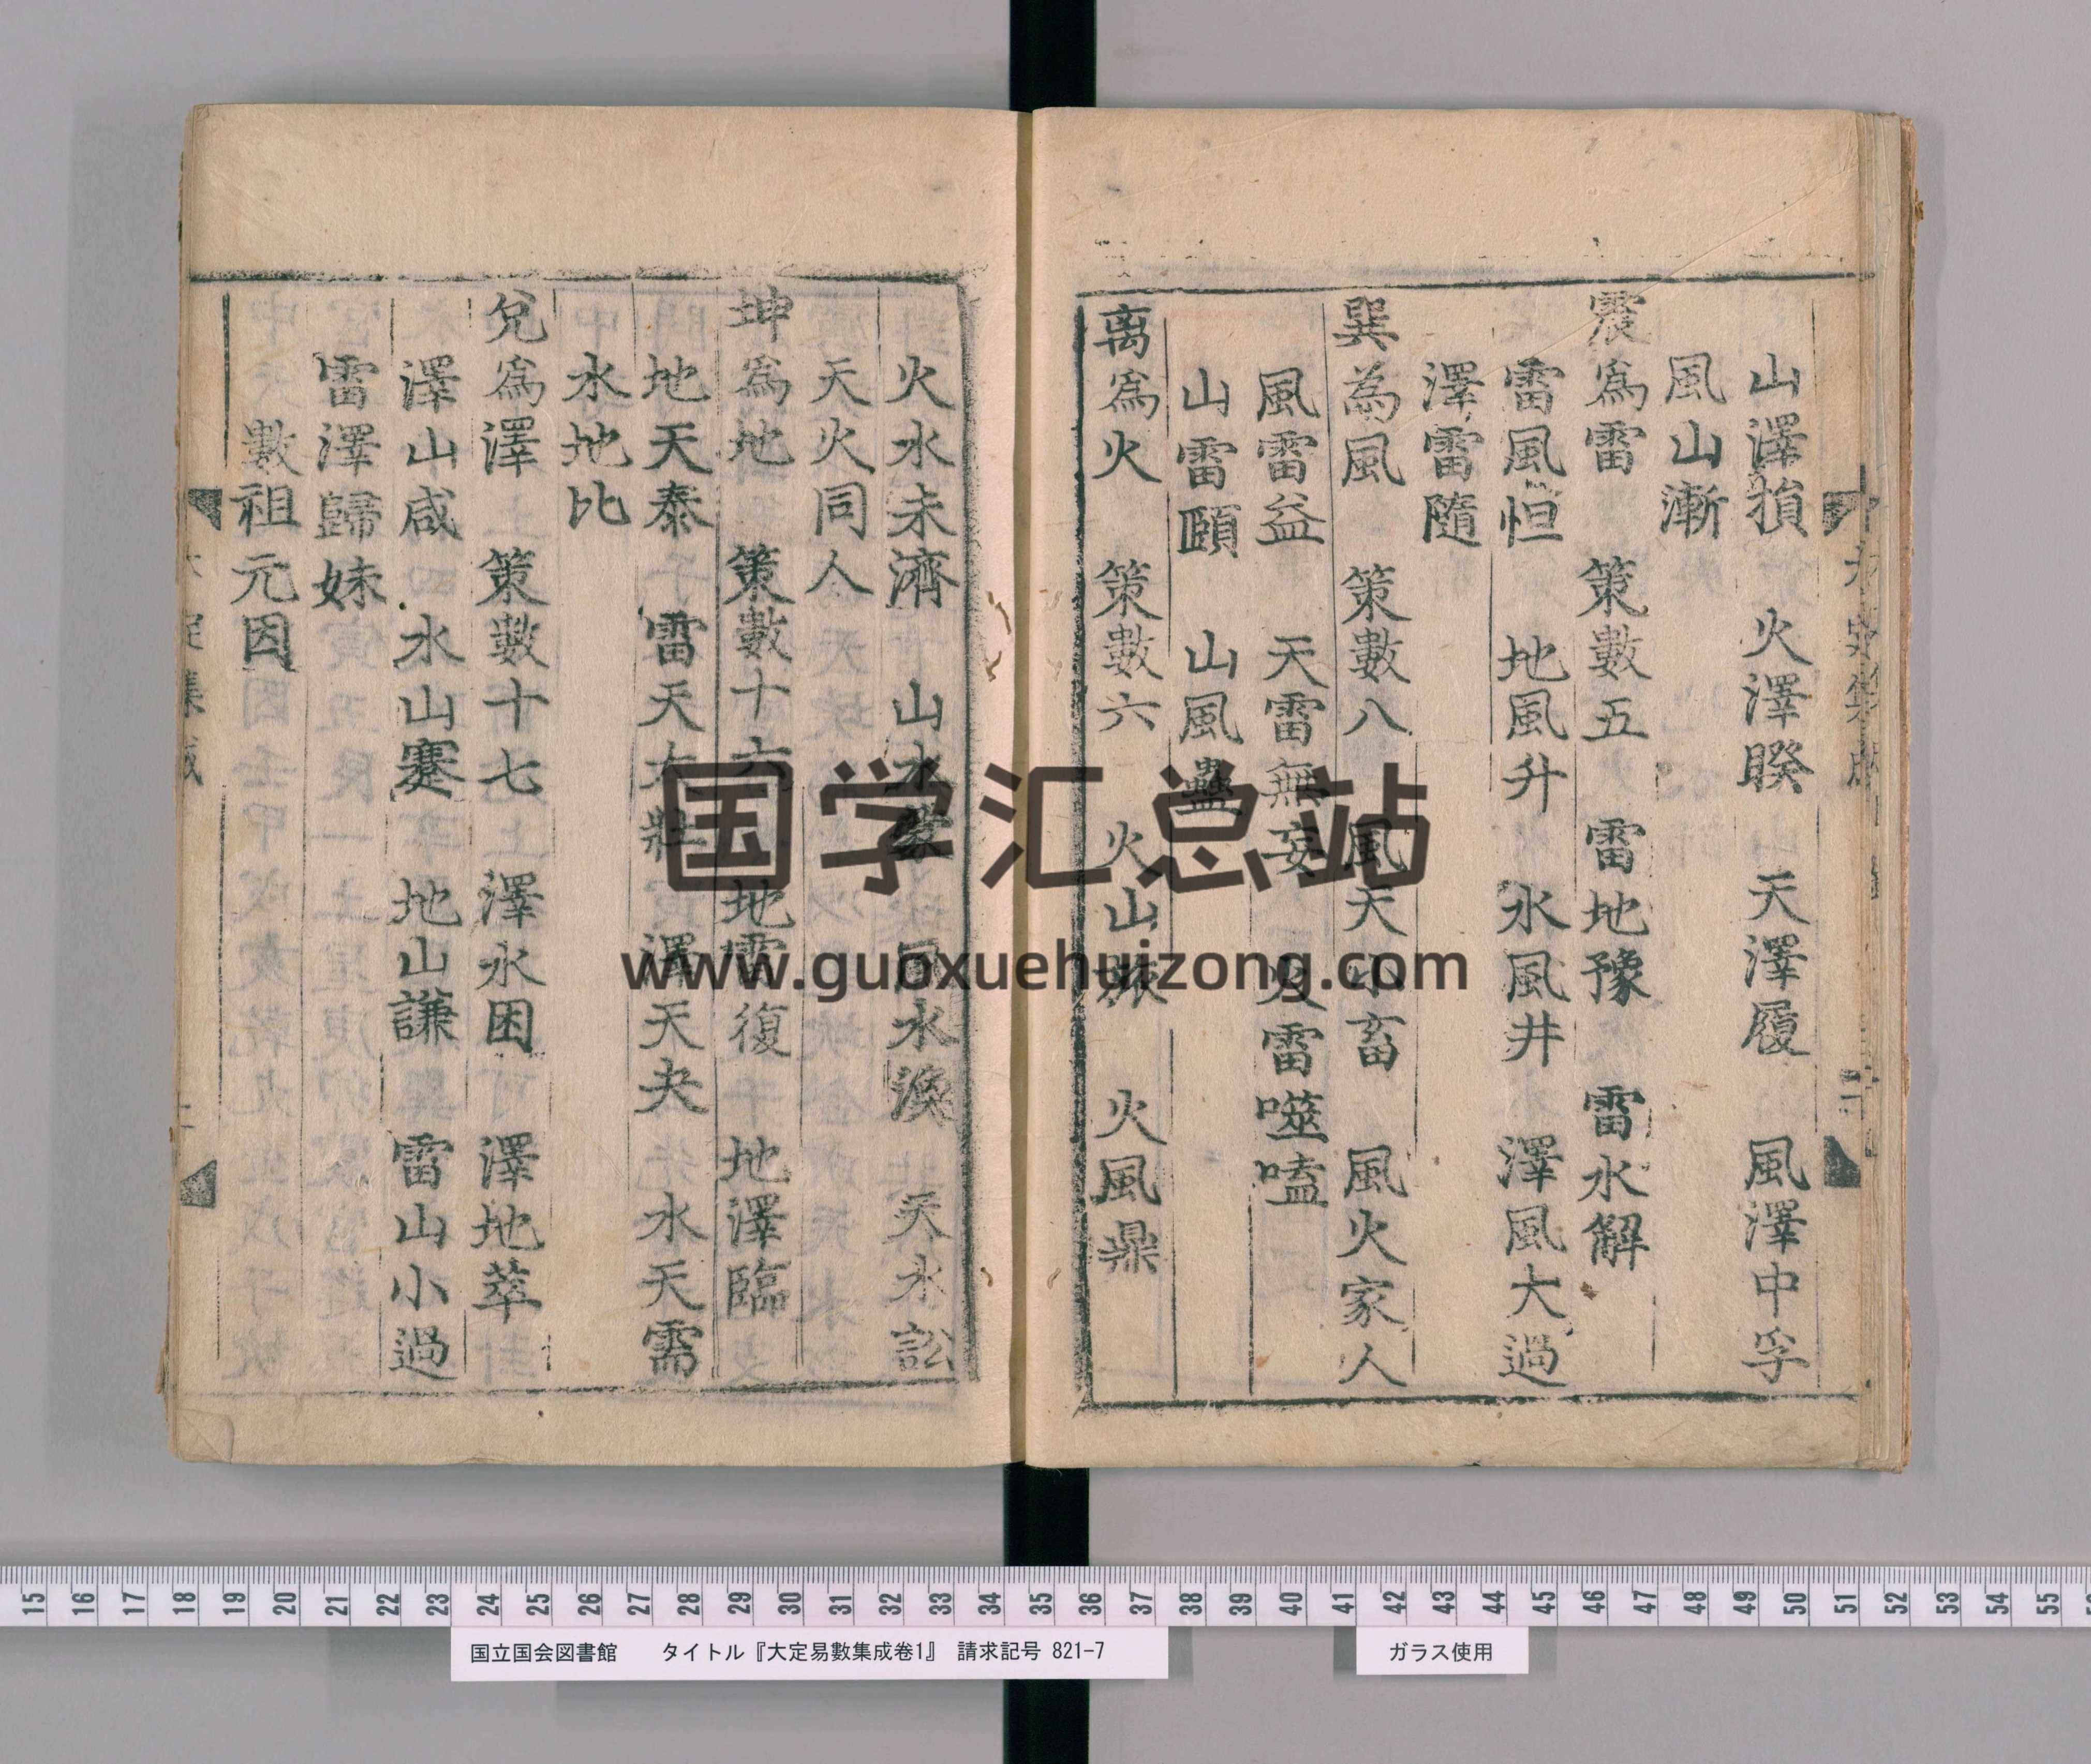 山澤損　火澤睽　天澤履　風澤中孚
風山漸
震為雷　策數五　雷地豫　雷水解
雷風恒　地風升　水風井　澤風大過
澤雷隨
巽為風　策數八　風天小畜　風火家人
風雷益　天雷無妄　火雷噬嗑
山雷頤　山風蠱
离為火　策數六　火山旅　火風鼎
火水未濟　山水蒙　風水渙　天水訟
天火同人
坤為地　策數十六　地雷復　地澤臨
地天泰　雷天大壯　澤天夬　水天需
水地比
兌為澤　策數十七　澤水困　澤地萃
澤山咸　水山蹇　地山謙　雷山小過
雷澤歸妹
數祖元因
国学汇总站
www.guoxuehuizong.com
15 16 17 18 19 20 21 22 23 24 25 26 27 28 29 30 31 32 33 34 35 36 37 38 39 40 41 42 43 44 45 46 47 48 49 50 51 52 53 54 55
国立国会図書館　タイトル『大定易數集成卷1』　請求記号 821-7
ガラス使用